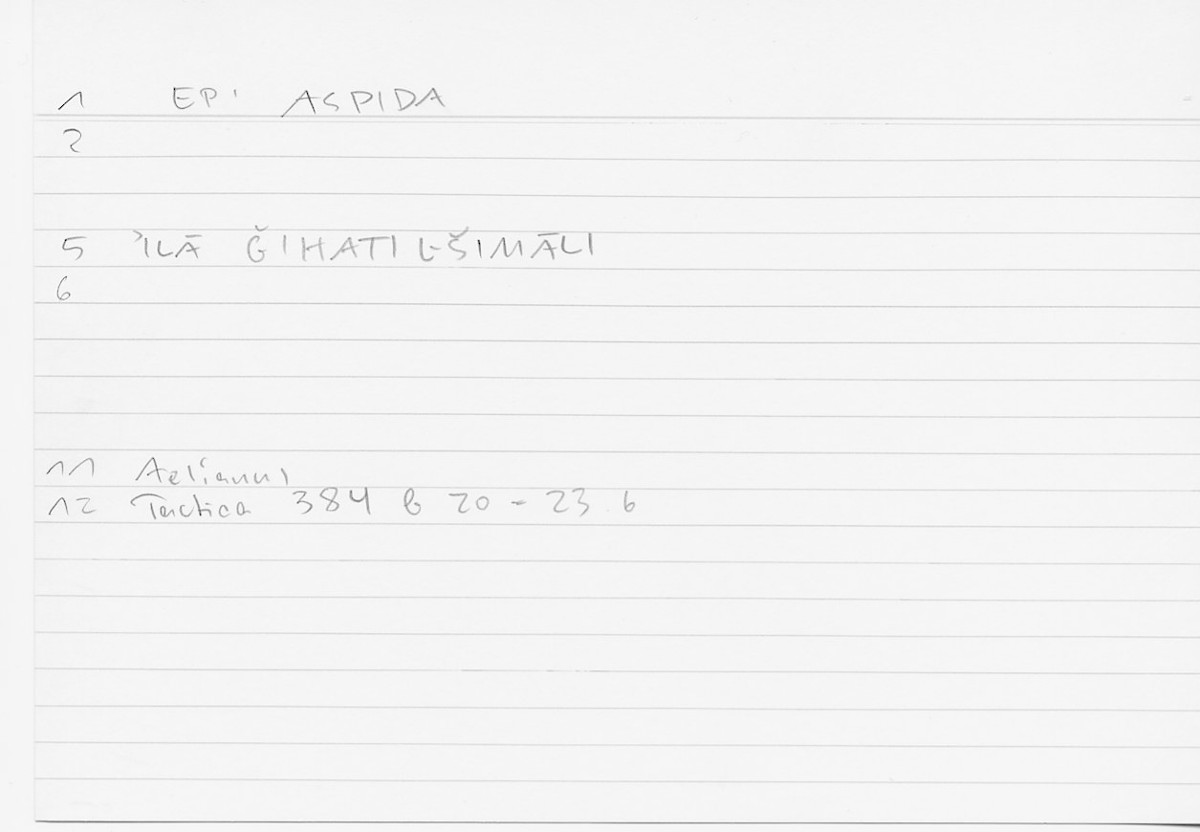 1 EP' ASPIDA
2
5 ʾILĀ ǦIHATI L-ŠIMĀLI
6
11 Aelianus
12 Tactica 384 b 20 - 23.6